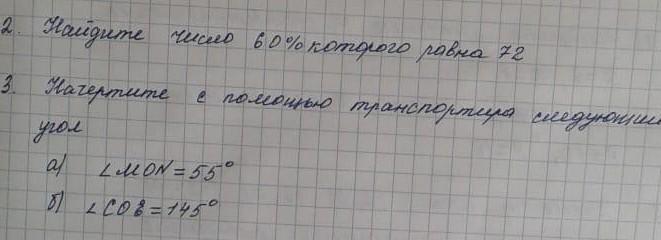 2. Найдите число 60% которого равна 72
3. Начертите с помощью транспортира следующий
угол
а) ∠MON = 55°
б) ∠COB = 145°